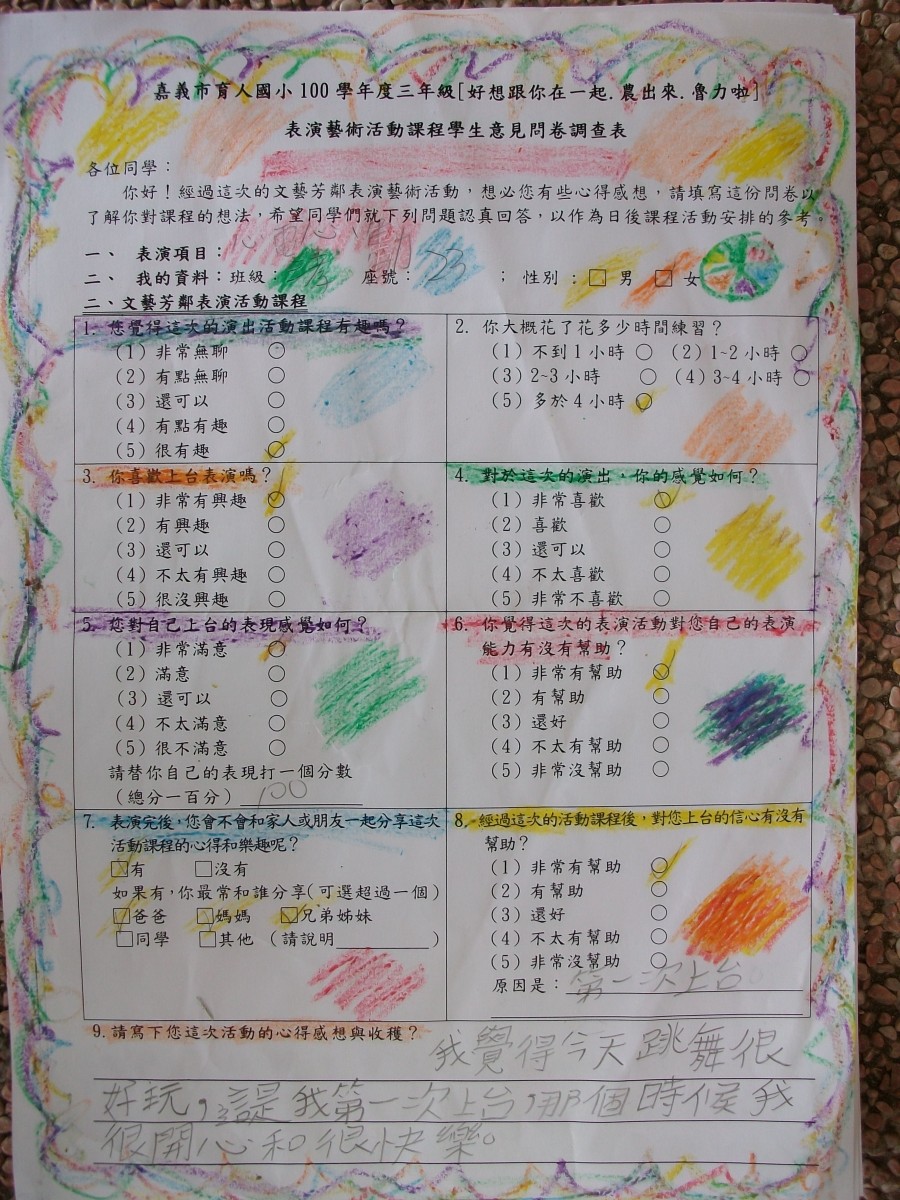 嘉義市育人國小100學年度三年級[好想跟你在一起.農出來.魯力啦]
表演藝術活動課程學生意見問卷調查表
各位同學：
你好！經過這次的文藝芳鄰表演藝術活動，想必您有些心得感想，請填寫這份問卷以
了解你對課程的想法，希望同學們就下列問題認真回答，以作為日後課程活動安排的參考。
一、 表演項目：心動
二、 我的資料：班級： 座號：23 ；性別：□男 □女
二、文藝芳鄰表演活動課程
1. 您覺得這次的演出活動課程有趣嗎？
(1) 非常無聊 ○
(2) 有點無聊 ○
(3) 還可以 ○
(4) 有點有趣 ○
(5) 很有趣 ○
2. 你大概花了花多少時間練習？
(1) 不到1小時 ○ (2) 1~2小時 ○
(3) 2~3小時 ○ (4) 3~4小時 ○
(5) 多於4小時 ○
3. 你喜歡上台表演嗎？
(1) 非常有興趣 ○
(2) 有興趣 ○
(3) 還可以 ○
(4) 不太有興趣 ○
(5) 很沒興趣 ○
4. 對於這次的演出，你的感覺如何？
(1) 非常喜歡 ○
(2) 喜歡 ○
(3) 還可以 ○
(4) 不太喜歡 ○
(5) 非常不喜歡 ○
5. 您對自己上台的表現感覺如何？
(1) 非常滿意 ○
(2) 滿意 ○
(3) 還可以 ○
(4) 不太滿意 ○
(5) 很不滿意 ○
請替你自己的表現打一個分數
(總分一百分) 100
6. 你覺得這次的表演活動對您自己的表演
能力有沒有幫助？
(1) 非常有幫助 ○
(2) 有幫助 ○
(3) 還好 ○
(4) 不太有幫助 ○
(5) 非常沒幫助 ○
7. 表演完後，您會不會和家人或朋友一起分享這次
活動課程的心得和樂趣呢？
☑有 □沒有
如果有，你最常和誰分享(可選超過一個)
☑爸爸 ☑媽媽 ☑兄弟姊妹
□同學 □其他 (請說明________)
8. 經過這次的活動課程後，對您上台的信心有沒有
幫助？
(1) 非常有幫助 ○
(2) 有幫助 ○
(3) 還好 ○
(4) 不太有幫助 ○
(5) 非常沒幫助 ○
原因是：第一次上台
9. 請寫下您這次活動的心得感想與收穫？
我覺得今天跳舞很
好玩，這是我第一次上台，那個時候我
很開心和很快樂。